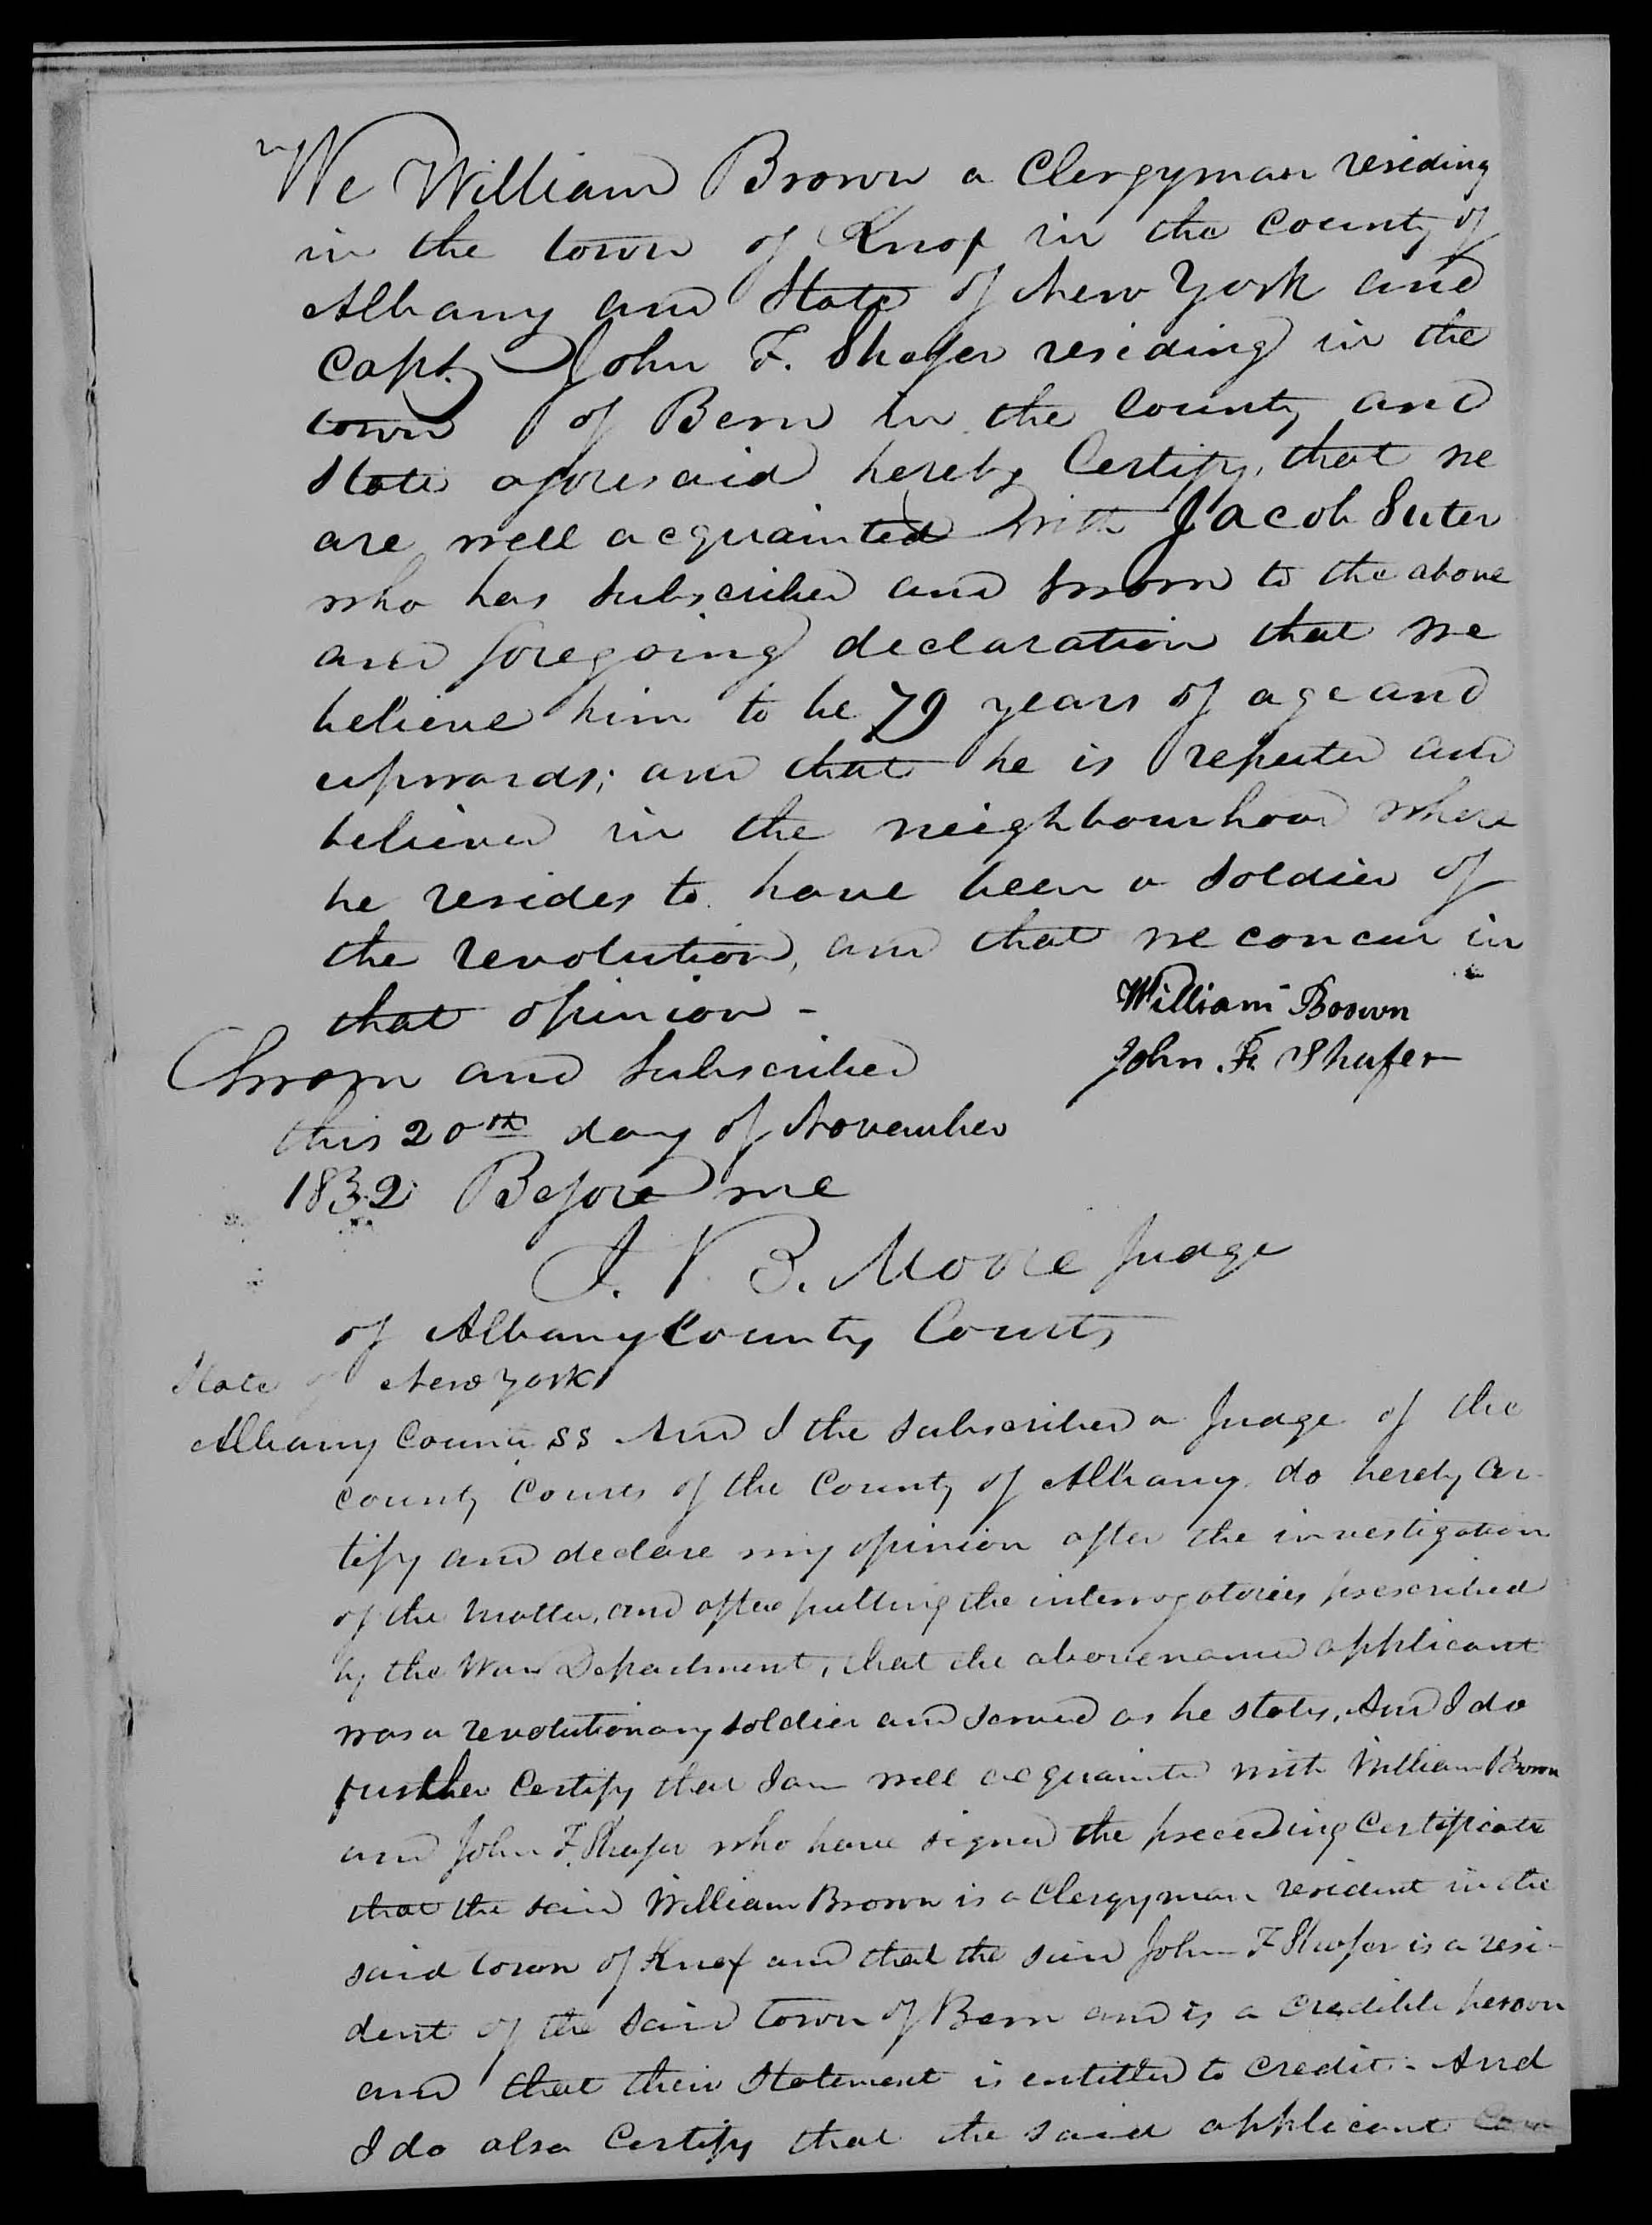 We William Brown a Clergyman residing
in the town of Knox in the County of
Albany and State of New York and
Capt. John F. Shafer residing in the
town of Bern in the County and
State aforesaid hereby Certify, that we
are well acquainted with Jacob Suter
who has subscribed and sworn to the above
and foregoing declaration that we
believe him to be 79 years of age and
upwards; and that he is reputed and
believed in the neighbourhood where
he resides to have been a soldier of
the revolution, and that we concur in
that opinion -
William Brown
John F. Shafer
Sworn and subscribed
this 20th day of November
1832 Before me
J. V. B. Moore Judge
of Albany County Courts
State of New York
Albany County SS And I the subscriber a Judge of the
County Courts of the County of Albany do hereby Cer-
tify and declare my opinion after the investigation
of the matter, and after putting the interrogatories prescribed
by the War Department, that the above named applicant
was a revolutionary soldier and served as he states, And I do
further Certify that I am well acquainted with William Brown
and John F. Shafer who have signed the preceeding Certificate
that the said William Brown is a Clergyman resident in the
said town of Knox and that the said John F Shafer is a resi-
dent of the said town of Bern and is a credible person
and that their Statement is entitled to credit - And
I do also Certify that the said applicant